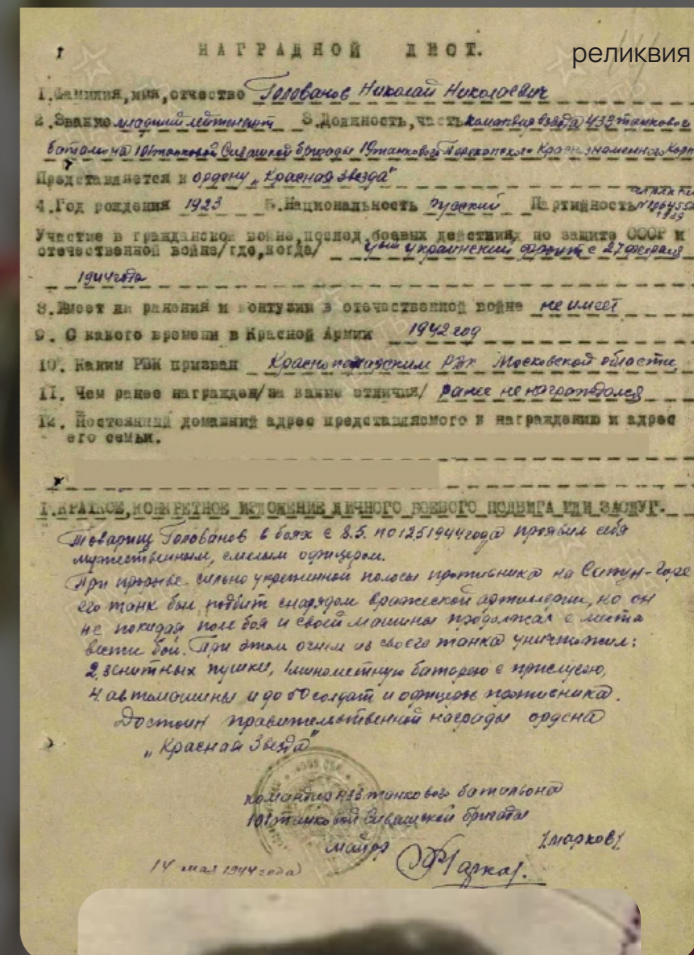 реликвия
1 НАГРАДНОЙ ЛИСТ.
1. Фамилия, имя, отчество Голованов Николай Николаевич
2. Звание младший лейтенант 3. Должность, часть командир взвода танкового
батальона 101 танковой Сивашской бригады 19 танкового Перекопского Краснознаменного
Представляется к ордену „Красная Звезда"
4. Год рождения 1923 5. Национальность русский Партийность
Участие в гражданской войне, послед. боевых действиях по защите СССР и
отечественной войне /где, когда/ 4ый украинский фронт с 27 февраля
1944 года
8. Имеет ли ранения и контузии в отечественной войне не имеет
9. С какого времени в Красной Армии 1942 год
10. Каким РВК призван РВК Московской области
11. Чем ранее награжден /за какие отличия/ ранее не награждался
12. Постоянный домашний адрес представляемого к награждению и адрес
его семьи.
1. КРАТКОЕ, КОНКРЕТНОЕ ИЗЛОЖЕНИЕ ЛИЧНОГО БОЕВОГО ПОДВИГА ИЛИ ЗАСЛУГ.
Товарищ Голованов в боях с 8.5. по 12.5 1944 года проявил себя
мужественным, смелым офицером.
При прорыве сильно укрепленной полосы противника на Сапун-Горе
его танк был подбит снарядом вражеской артиллерии, но он
не покидая поле боя и своей машины продолжал с места
вести бой. При этом огнем из своего танка уничтожил:
2 зенитных пушки, 1 минометную батарею с прислугою,
4 автомашины и до 50 солдат и офицеров противника.
Достоин правительственной награды ордена
„Красная Звезда"
командир танкового батальона
101 танковой Сивашской бригады
майор /Марков/
14 мая 1944 года